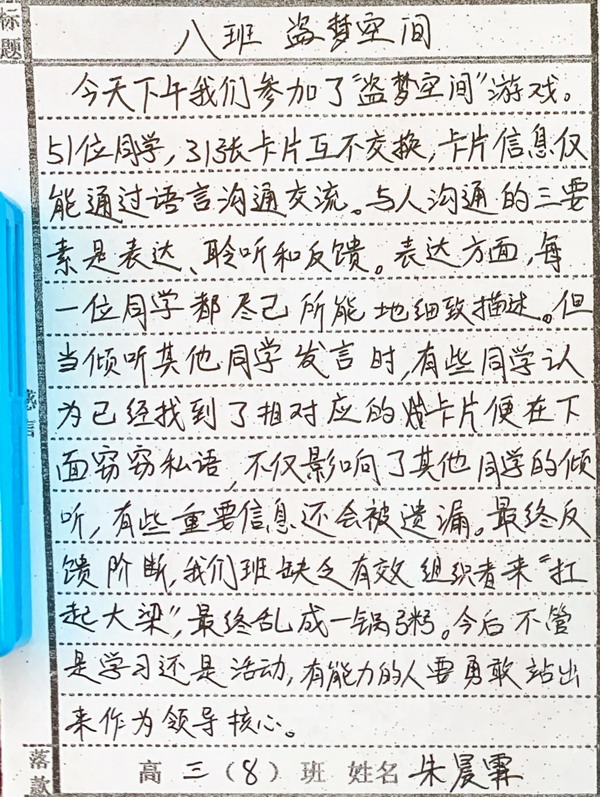 标题 八班 盗梦空间
今天下午我们参加了“盗梦空间”游戏。
51位同学,31张卡片互不交换,卡片信息仅
能通过语言沟通交流。与人沟通的三要
素是表达、聆听和反馈。表达方面,每
一位同学都尽己所能地细致描述。但
当倾听其他同学发言时,有些同学认
为己经找到了相对应的卡片便在下
面窃窃私语,不仅影响了其他同学的倾
听,有些重要信息还会被遗漏。最终反
馈阶断,我们班缺乏有效组织者来“扛
起大梁”,最终乱成一锅粥。今后不管
是学习还是活动,有能力的人要勇敢站出
来作为领导核心。
感言
落款 高三(8)班 姓名 朱晨霖